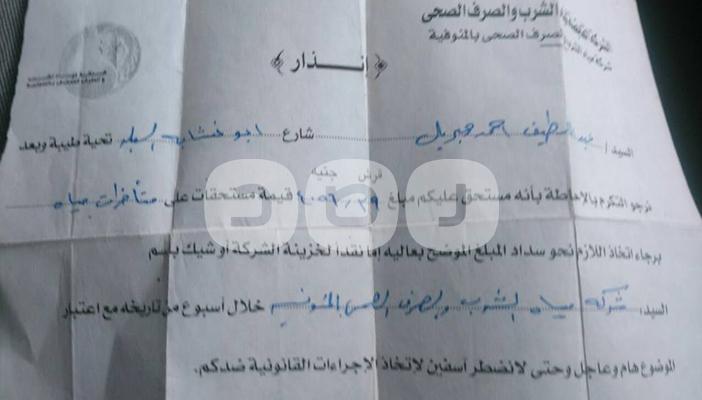 الشرب والصرف الصحى
شركة مياه الشرب والصرف الصحى بالمنوفية
﴿ إنــذار ﴾
السيد / عبد اللطيف احمد جبريل شارع ابو خشاب السيد تحية طيبة وبعد
قرش جنيه
نرجو التكرم بالاحاطة بأنه مستحق عليكم مبلغ قيمة مستحقات على متأخرات مياه
برجاء اتخاذ اللازم نحو سداد المبلغ الموضح بعاليه إما نقدا لخزينة الشركة أو شيك بإسم
السيد / شركة مياه الشرب والصرف الصحى بالمنوفية خلال أسبوع من تاريخه مع اعتبار
الموضوع هام وعاجل وحتى لا نضطر آسفين لاتخاذ الإجراءات القانونية ضدكم.